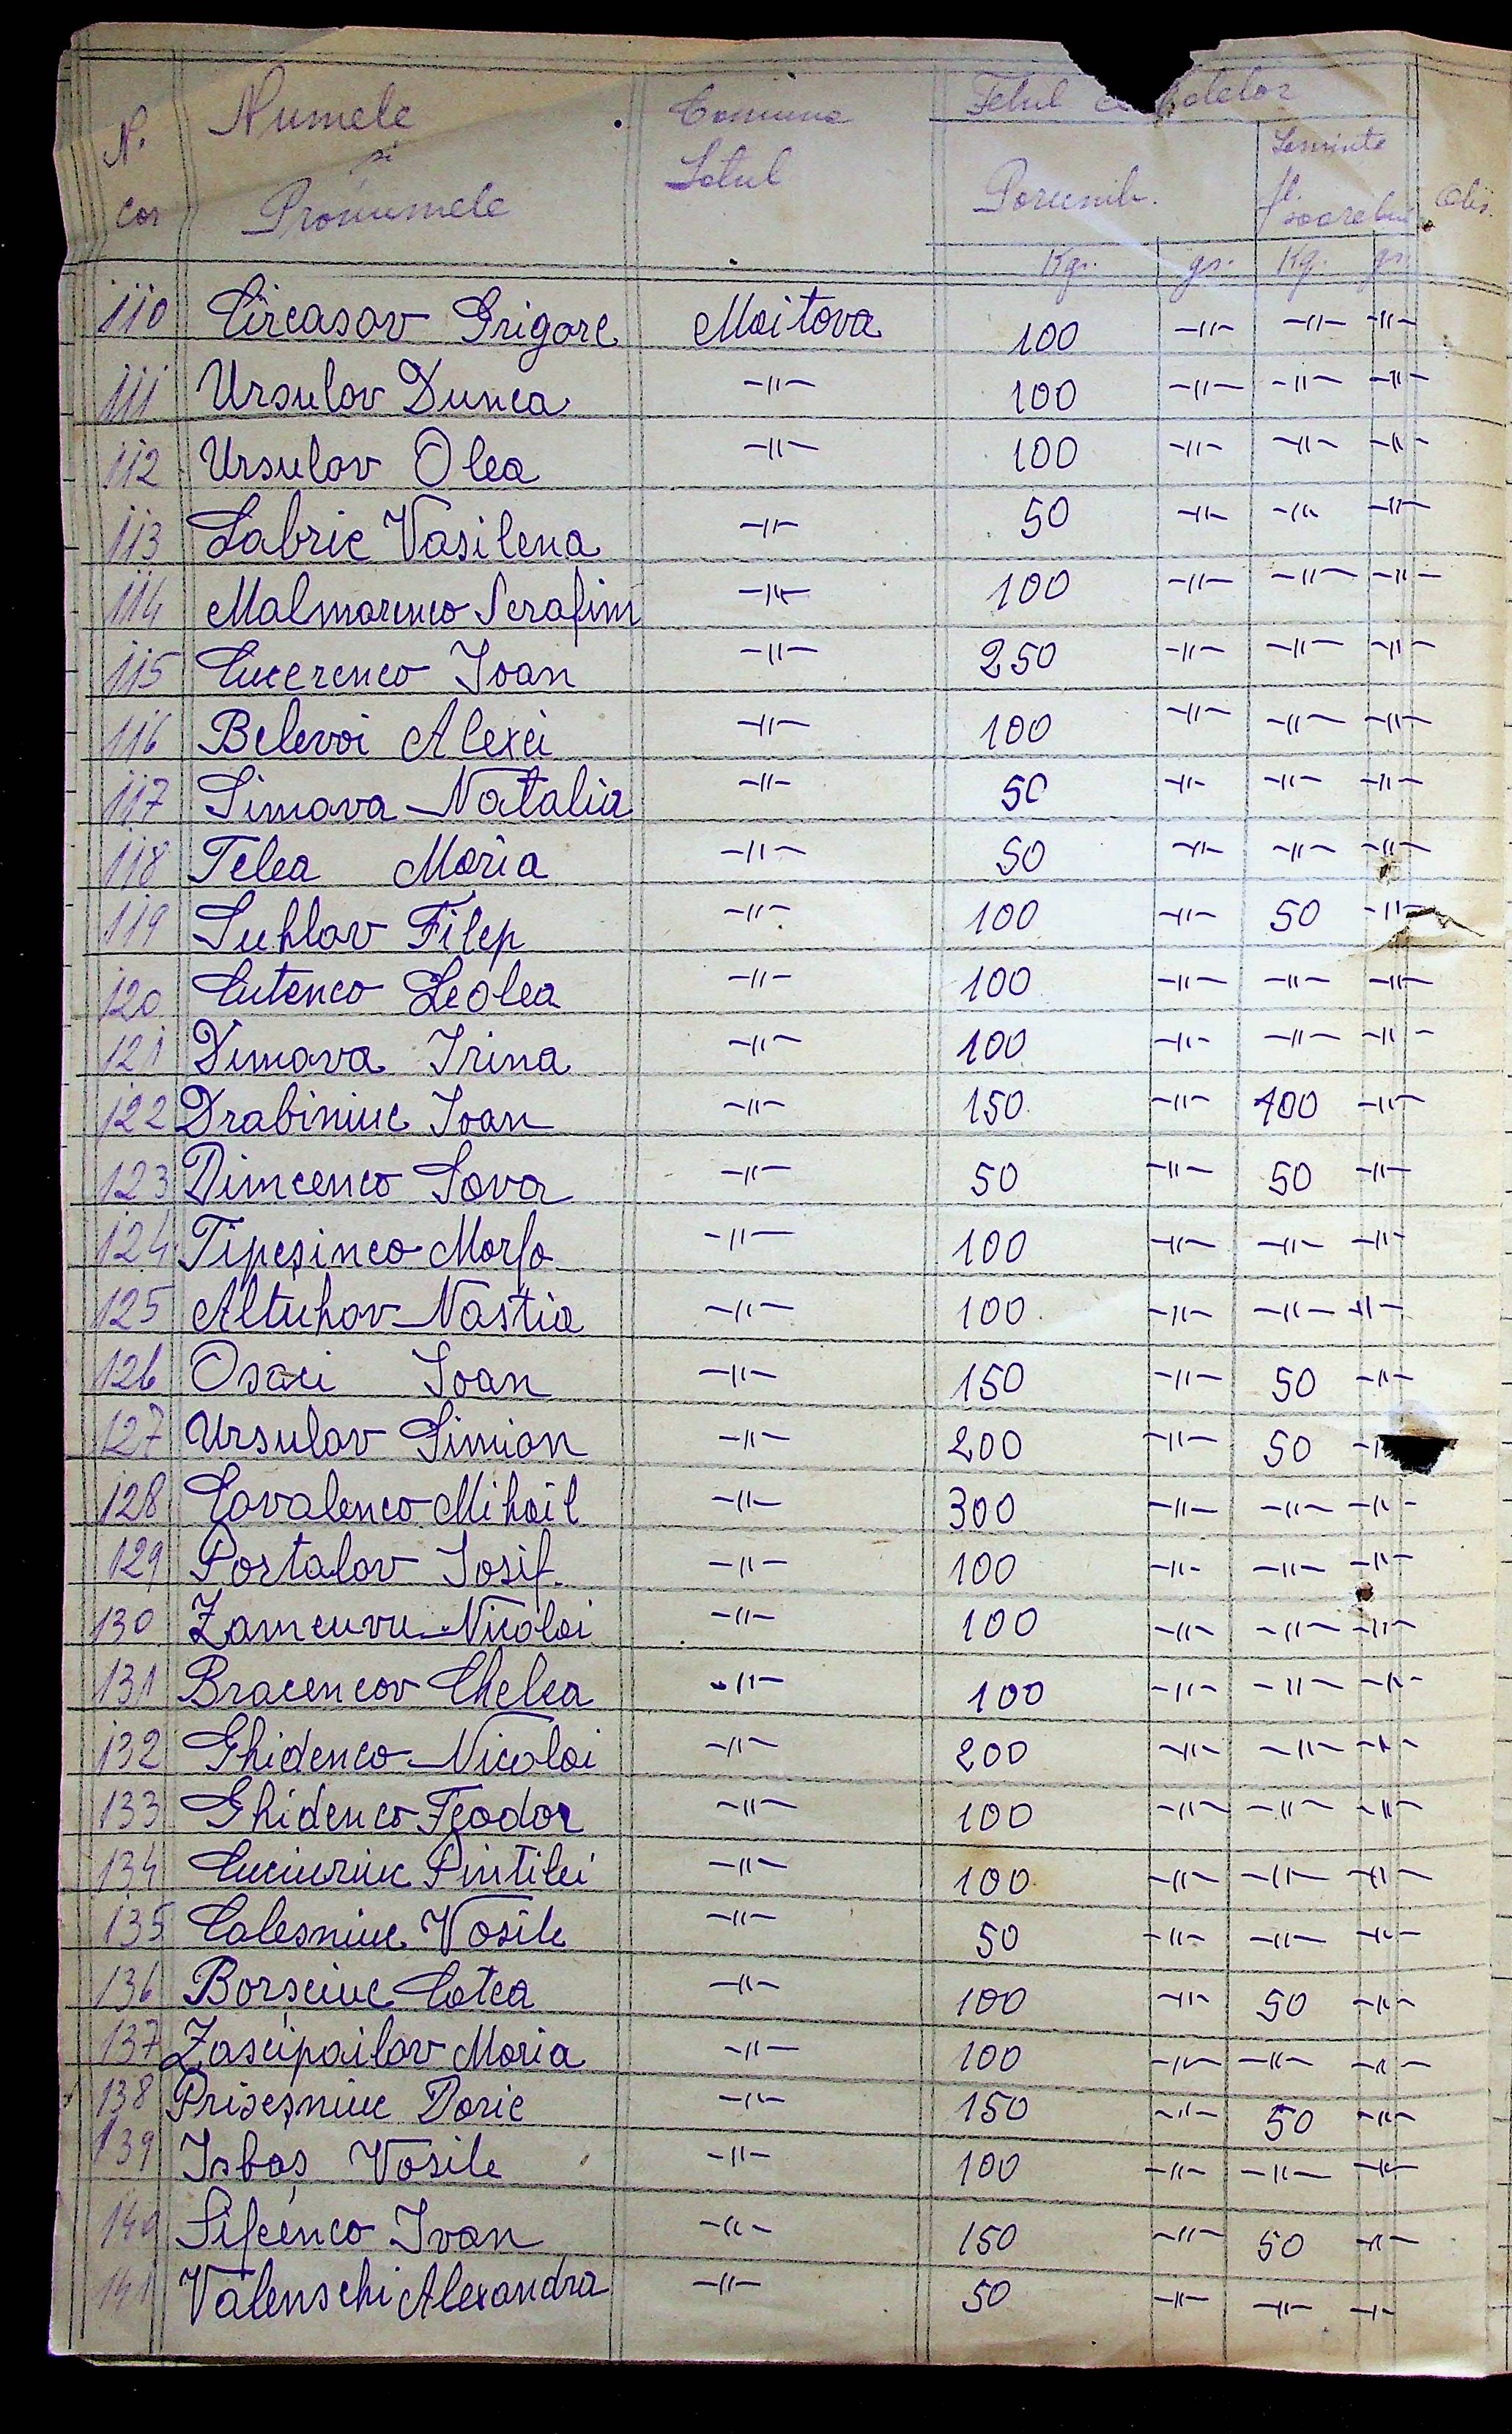 N. cor Numele și Pronumele Comuna Satul Felul
Porumb. Seminte fl. soarelui Obs.
Kg. gr. Kg. gr.
110 Circasov Grigore Moitova 100 -"- -"- -"-
111 Ursulov Dunca -"- 100 -"- -"- -"-
112 Ursulov Olea -"- 100 -"- -"- -"-
113 Labric Vasilena -"- 50 -"- -"- -"-
114 Malmarenco Serafim -"- 100 -"- -"- -"-
115 Cucerenco Ioan -"- 250 -"- -"- -"-
116 Belevoi Alexei -"- 100 -"- -"- -"-
117 Simova Natalia -"- 50 -"- -"- -"-
118 Telea Maria -"- 50 -"- -"- -"-
119 Suhlov Filep -"- 100 -"- 50 -"-
120 Cutenco Leolea -"- 100 -"- -"- -"-
121 Dimova Irina -"- 100 -"- -"- -"-
122 Drabiniuc Ioan -"- 150 -"- 100 -"-
123 Dimcenco Sava -"- 50 -"- 50 -"-
124 Tipeșinco Marfa -"- 100 -"- -"- -"-
125 Altuhov Nastia -"- 100 -"- -"- -"-
126 Osaci Ioan -"- 150 -"- 50 -"-
127 Ursulov Simion -"- 200 -"- 50
128 Covalenco Mihail -"- 300 -"- -"- -"-
129 Portalov Iosif. -"- 100 -"- -"- -"-
130 Zamcuvu Nicolai -"- 100 -"- -"- -"-
131 Bracencov Chelea -"- 100 -"- -"- -"-
132 Ghidenco Nicolai -"- 200 -"- -"- -"-
133 Ghidenco Feodor -"- 100 -"- -"- -"-
134 Cuciuriuc Pintilei -"- 100 -"- -"- -"-
135 Colesniuc Vasile -"- 50 -"- -"- -"-
136 Borșciuc Catea -"- 100 -"- 50 -"-
137 Zascipailov Maria -"- 100 -"- -"- -"-
138 Piseșniuc Darie -"- 150 -"- 50 -"-
139 Isbaș Vasile -"- 100 -"- -"- -"-
140 Sifcenco Ivan -"- 150 -"- 50 -"-
141 Valenschi Alexandra -"- 50 -"- -"- -"-